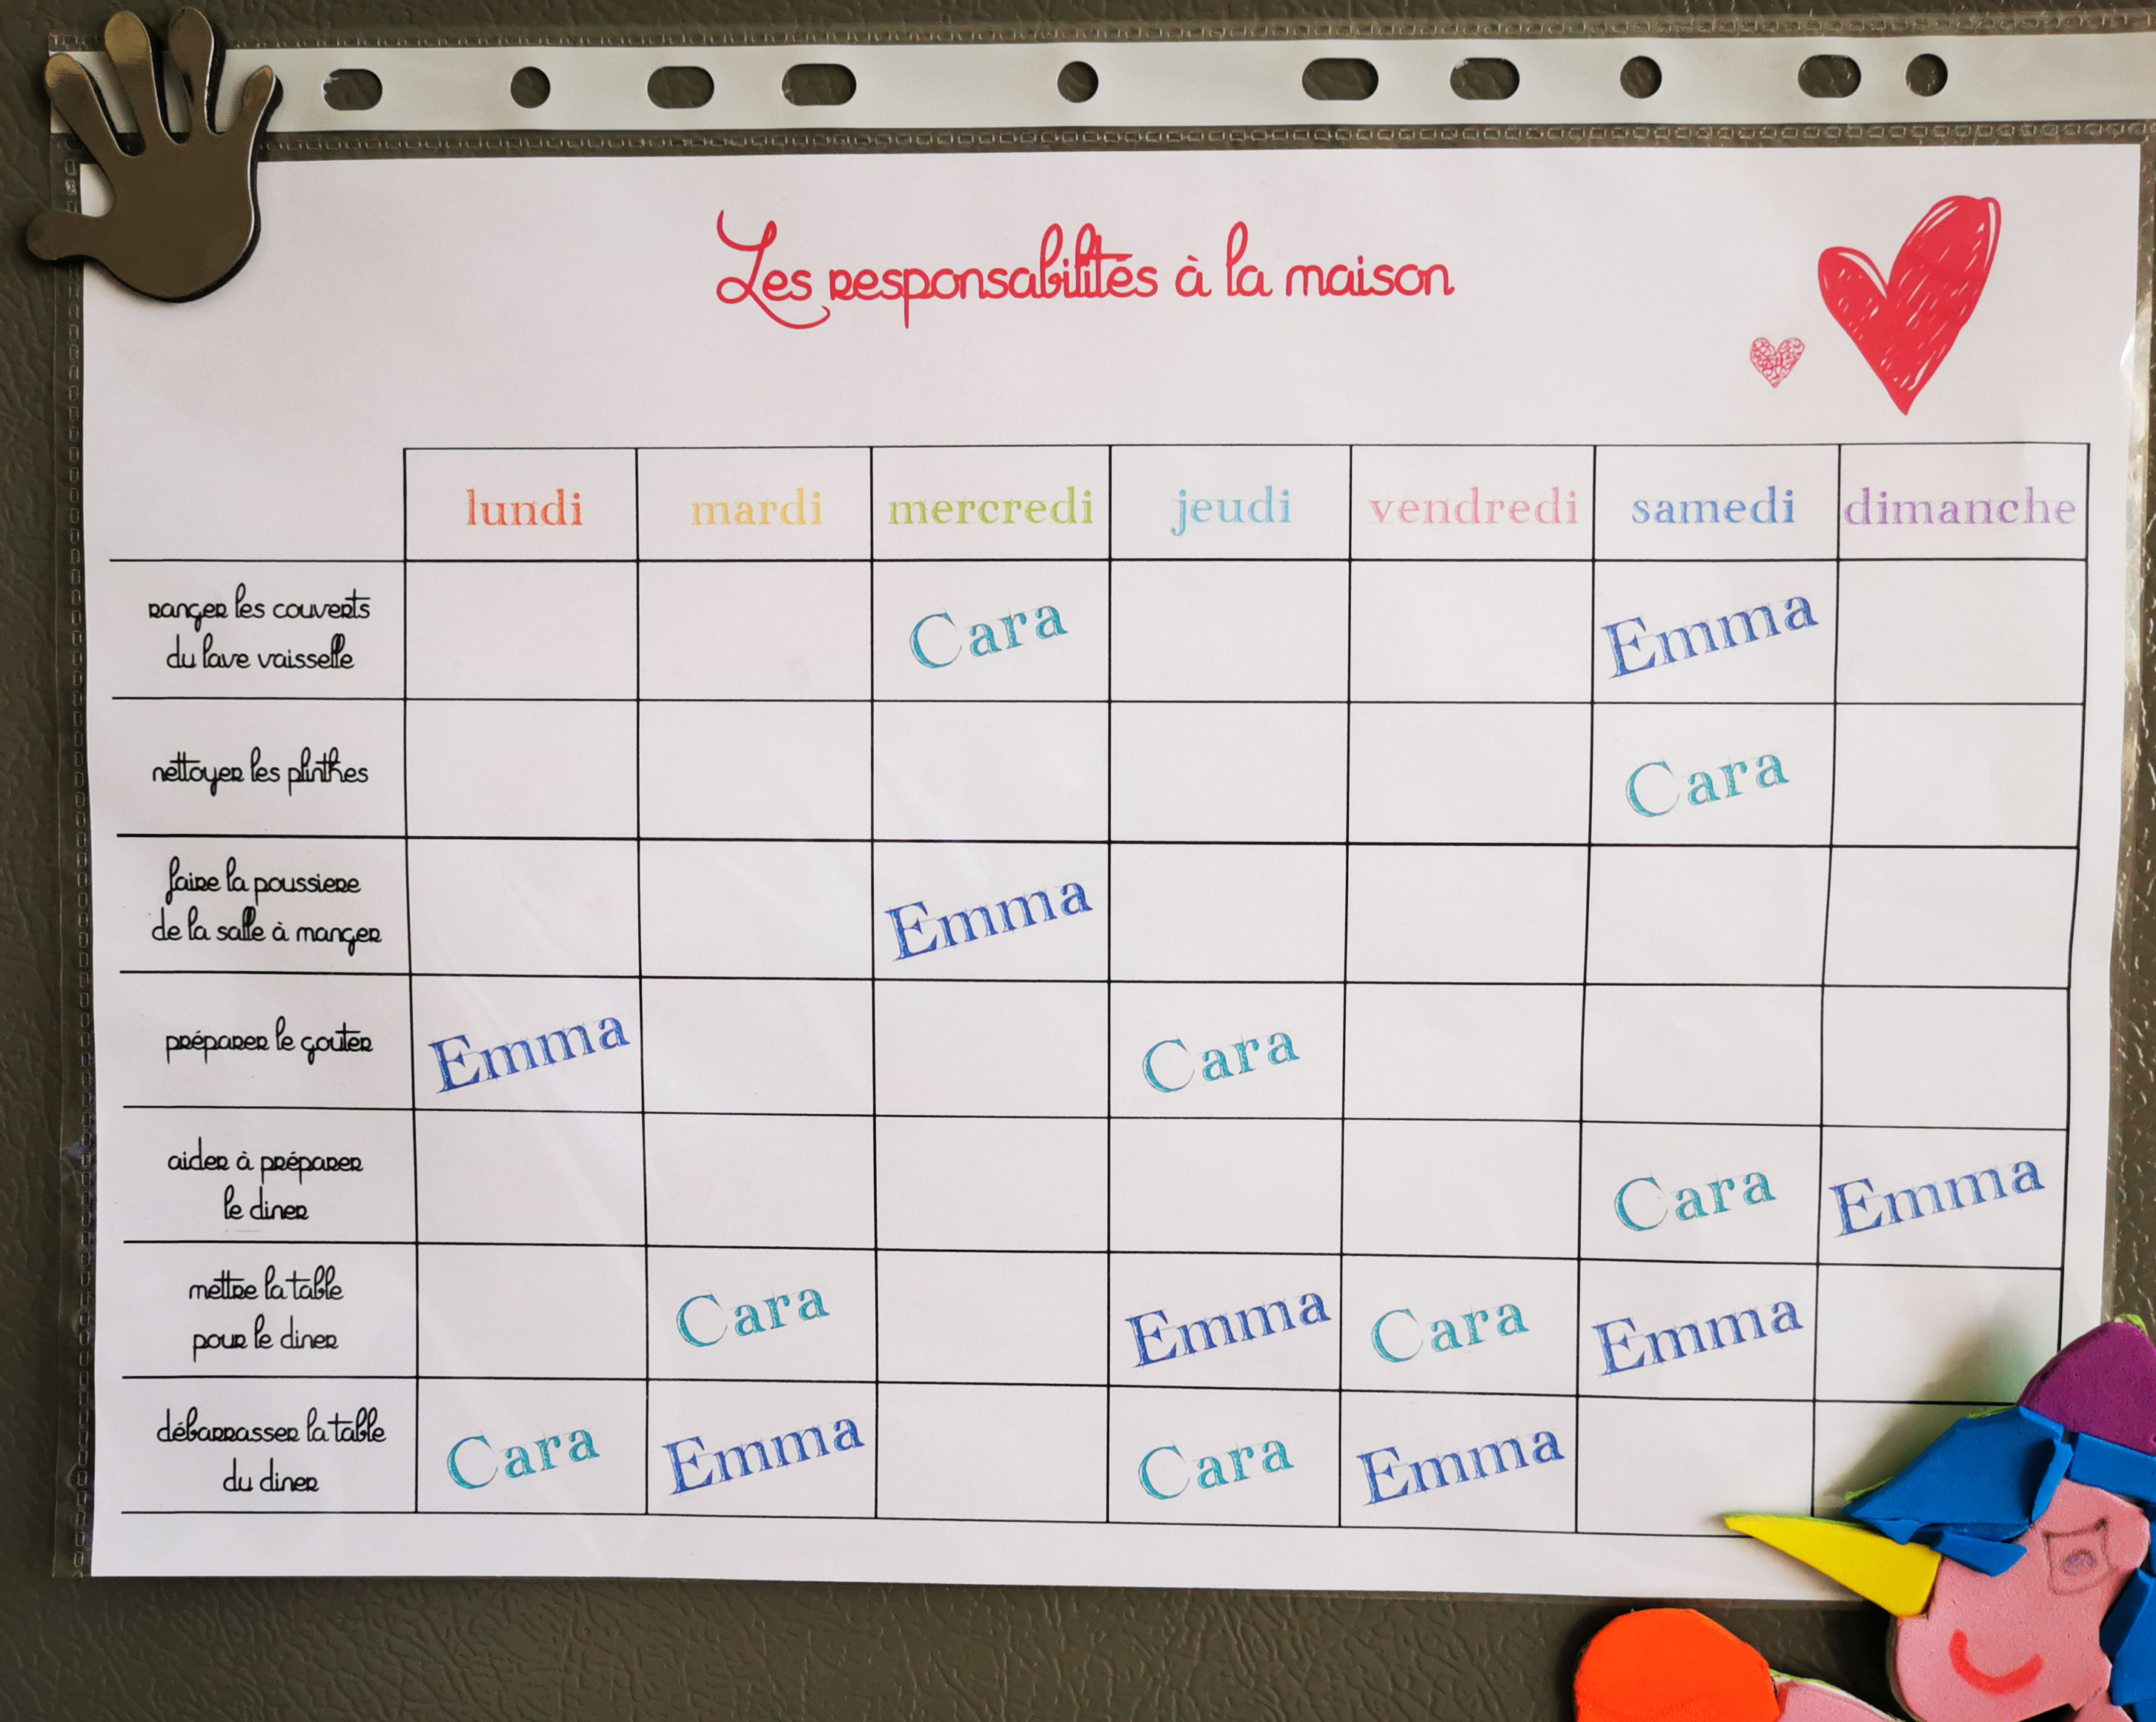 Les responsabilités à la maison
lundi mardi mercredi jeudi vendredi samedi dimanche
ranger les couverts
du lave vaisselle
Cara Emma
nettoyer les plinthes
Cara
faire la poussiere
de la salle à manger
Emma
préparer le gouter
Emma Cara
aider à préparer
le diner
Cara Emma
mettre la table
pour le diner
Cara Emma Cara Emma
débarrasser la table
du diner
Cara Emma Cara Emma